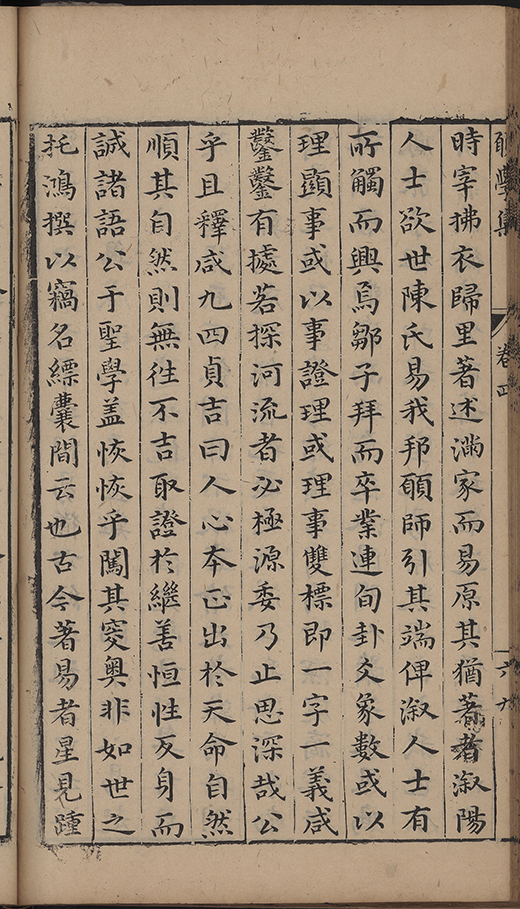 學集
卷四
六九
時宰拂衣歸里著述滿家而易原其猶著者溆陽
人士欲世陳氏易我邦頤師引其端俾溆人士有
所觸而興焉鄒子拜而卒業連旬卦爻象數或以
理顯事或以事證理或理事雙標即一字一義咸
鑿鑿有據若探河流者必極源委乃止思深哉公
乎且釋咸九四貞吉曰人心本正出於天命自然
順其自然則無徃不吉取證於繼善恒性反身而
誠諸語公于聖學盖恢恢乎闖其窔奧非如世之
托鴻撰以竊名縹囊間云也古今著易者星見踵